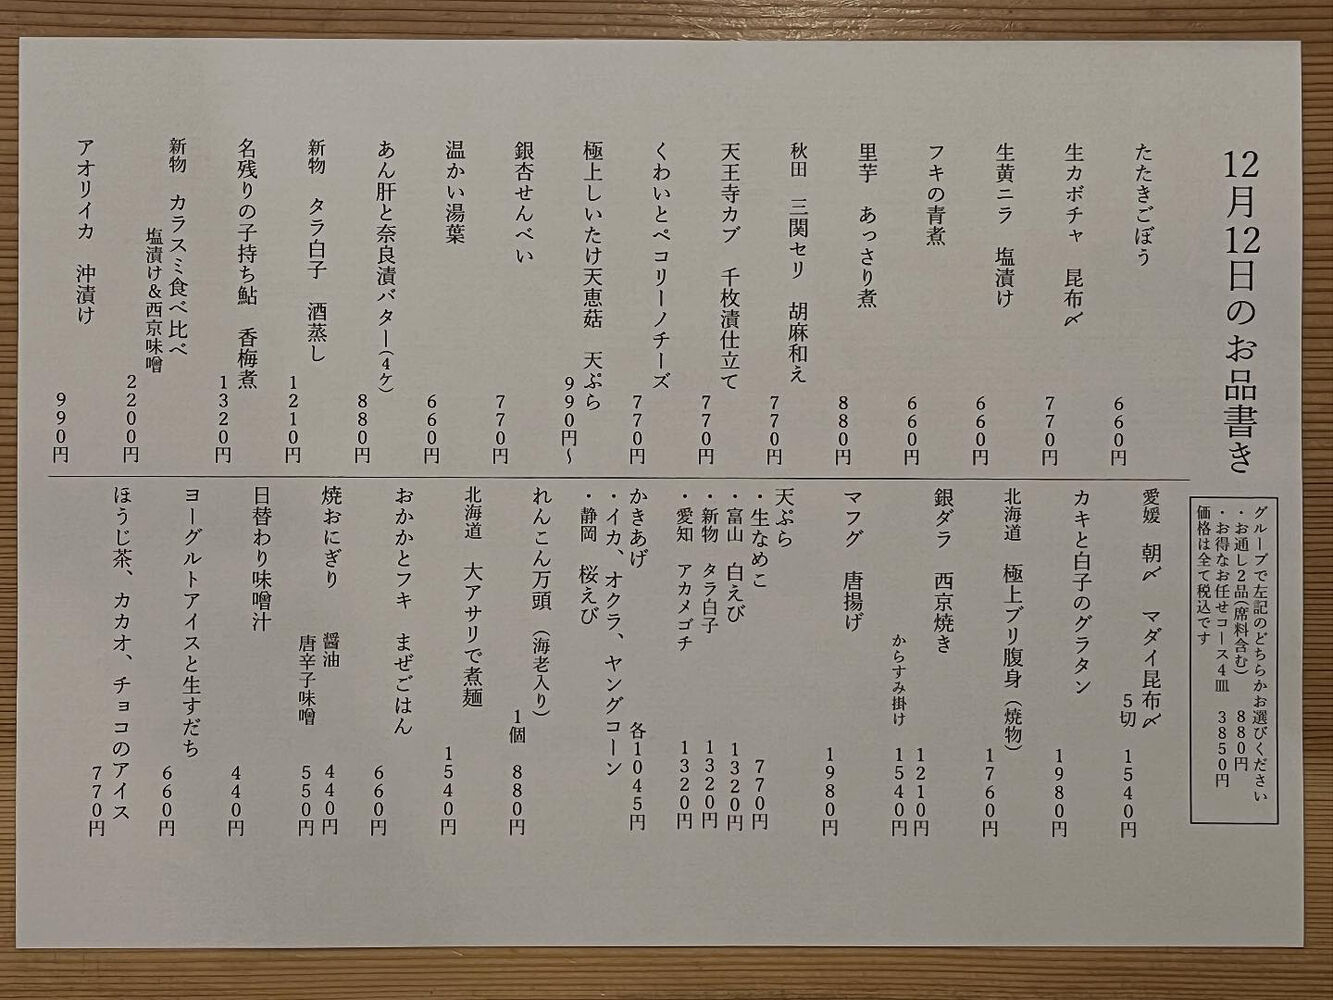 12月12日のお品書き
グループで左記のどちらかお選びください
・お通し2品(席料含む) 880円
・お得なお任せコース4皿 3850円
価格は全て税込です
たたきごぼう 660円
生カボチャ 昆布〆 770円
生黄ニラ 塩漬け 660円
フキの青煮 660円
里芋 あっさり煮 880円
秋田 三関セリ 胡麻和え 770円
天王寺カブ 千枚漬仕立て 770円
くわいとペコリーノチーズ 770円
極上しいたけ天恵菇 天ぷら 990円〜
銀杏せんべい 770円
温かい湯葉 660円
あん肝と奈良漬バター(4ヶ) 880円
新物 タラ白子 酒蒸し 1210円
名残りの子持ち鮎 香梅煮 1320円
新物 カラスミ食べ比べ
塩漬け&西京味噌 2200円
アオリイカ 沖漬け 990円
愛媛 朝〆 マダイ昆布〆
5切 1540円
カキと白子のグラタン 1980円
北海道 極上ブリ腹身(焼物) 1760円
銀ダラ 西京焼き 1210円
からすみ掛け 1540円
マフグ 唐揚げ 1980円
天ぷら
・生なめこ 770円
・富山 白えび 1320円
・新物 タラ白子 1320円
・愛知 アカメゴチ 1320円
かきあげ 各1045円
・イカ、オクラ、ヤングコーン
・静岡 桜えび
れんこん万頭(海老入り)
1個 880円
北海道 大アサリで煮麺 1540円
おかかとフキ まぜごはん 660円
焼おにぎり 醤油 440円
唐辛子味噌 550円
日替わり味噌汁 440円
ヨーグルトアイスと生すだち 660円
ほうじ茶、カカオ、チョコのアイス 770円